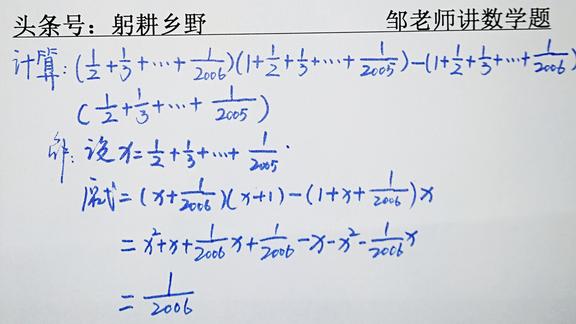 头条号：躬耕乡野 邹老师讲数学题
计算：(1/2+1/3+⋯+1/2006)(1+1/2+1/3+⋯+1/2005)−(1+1/2+1/3+⋯+1/2006)
(1/2+1/3+⋯+1/2005)
解：设x=1/2+1/3+⋯+1/2005.
原式=(x+1/2006)(x+1)−(1+x+1/2006)x
=x²+x+1/2006x+1/2006−x−x²−1/2006x
=1/2006